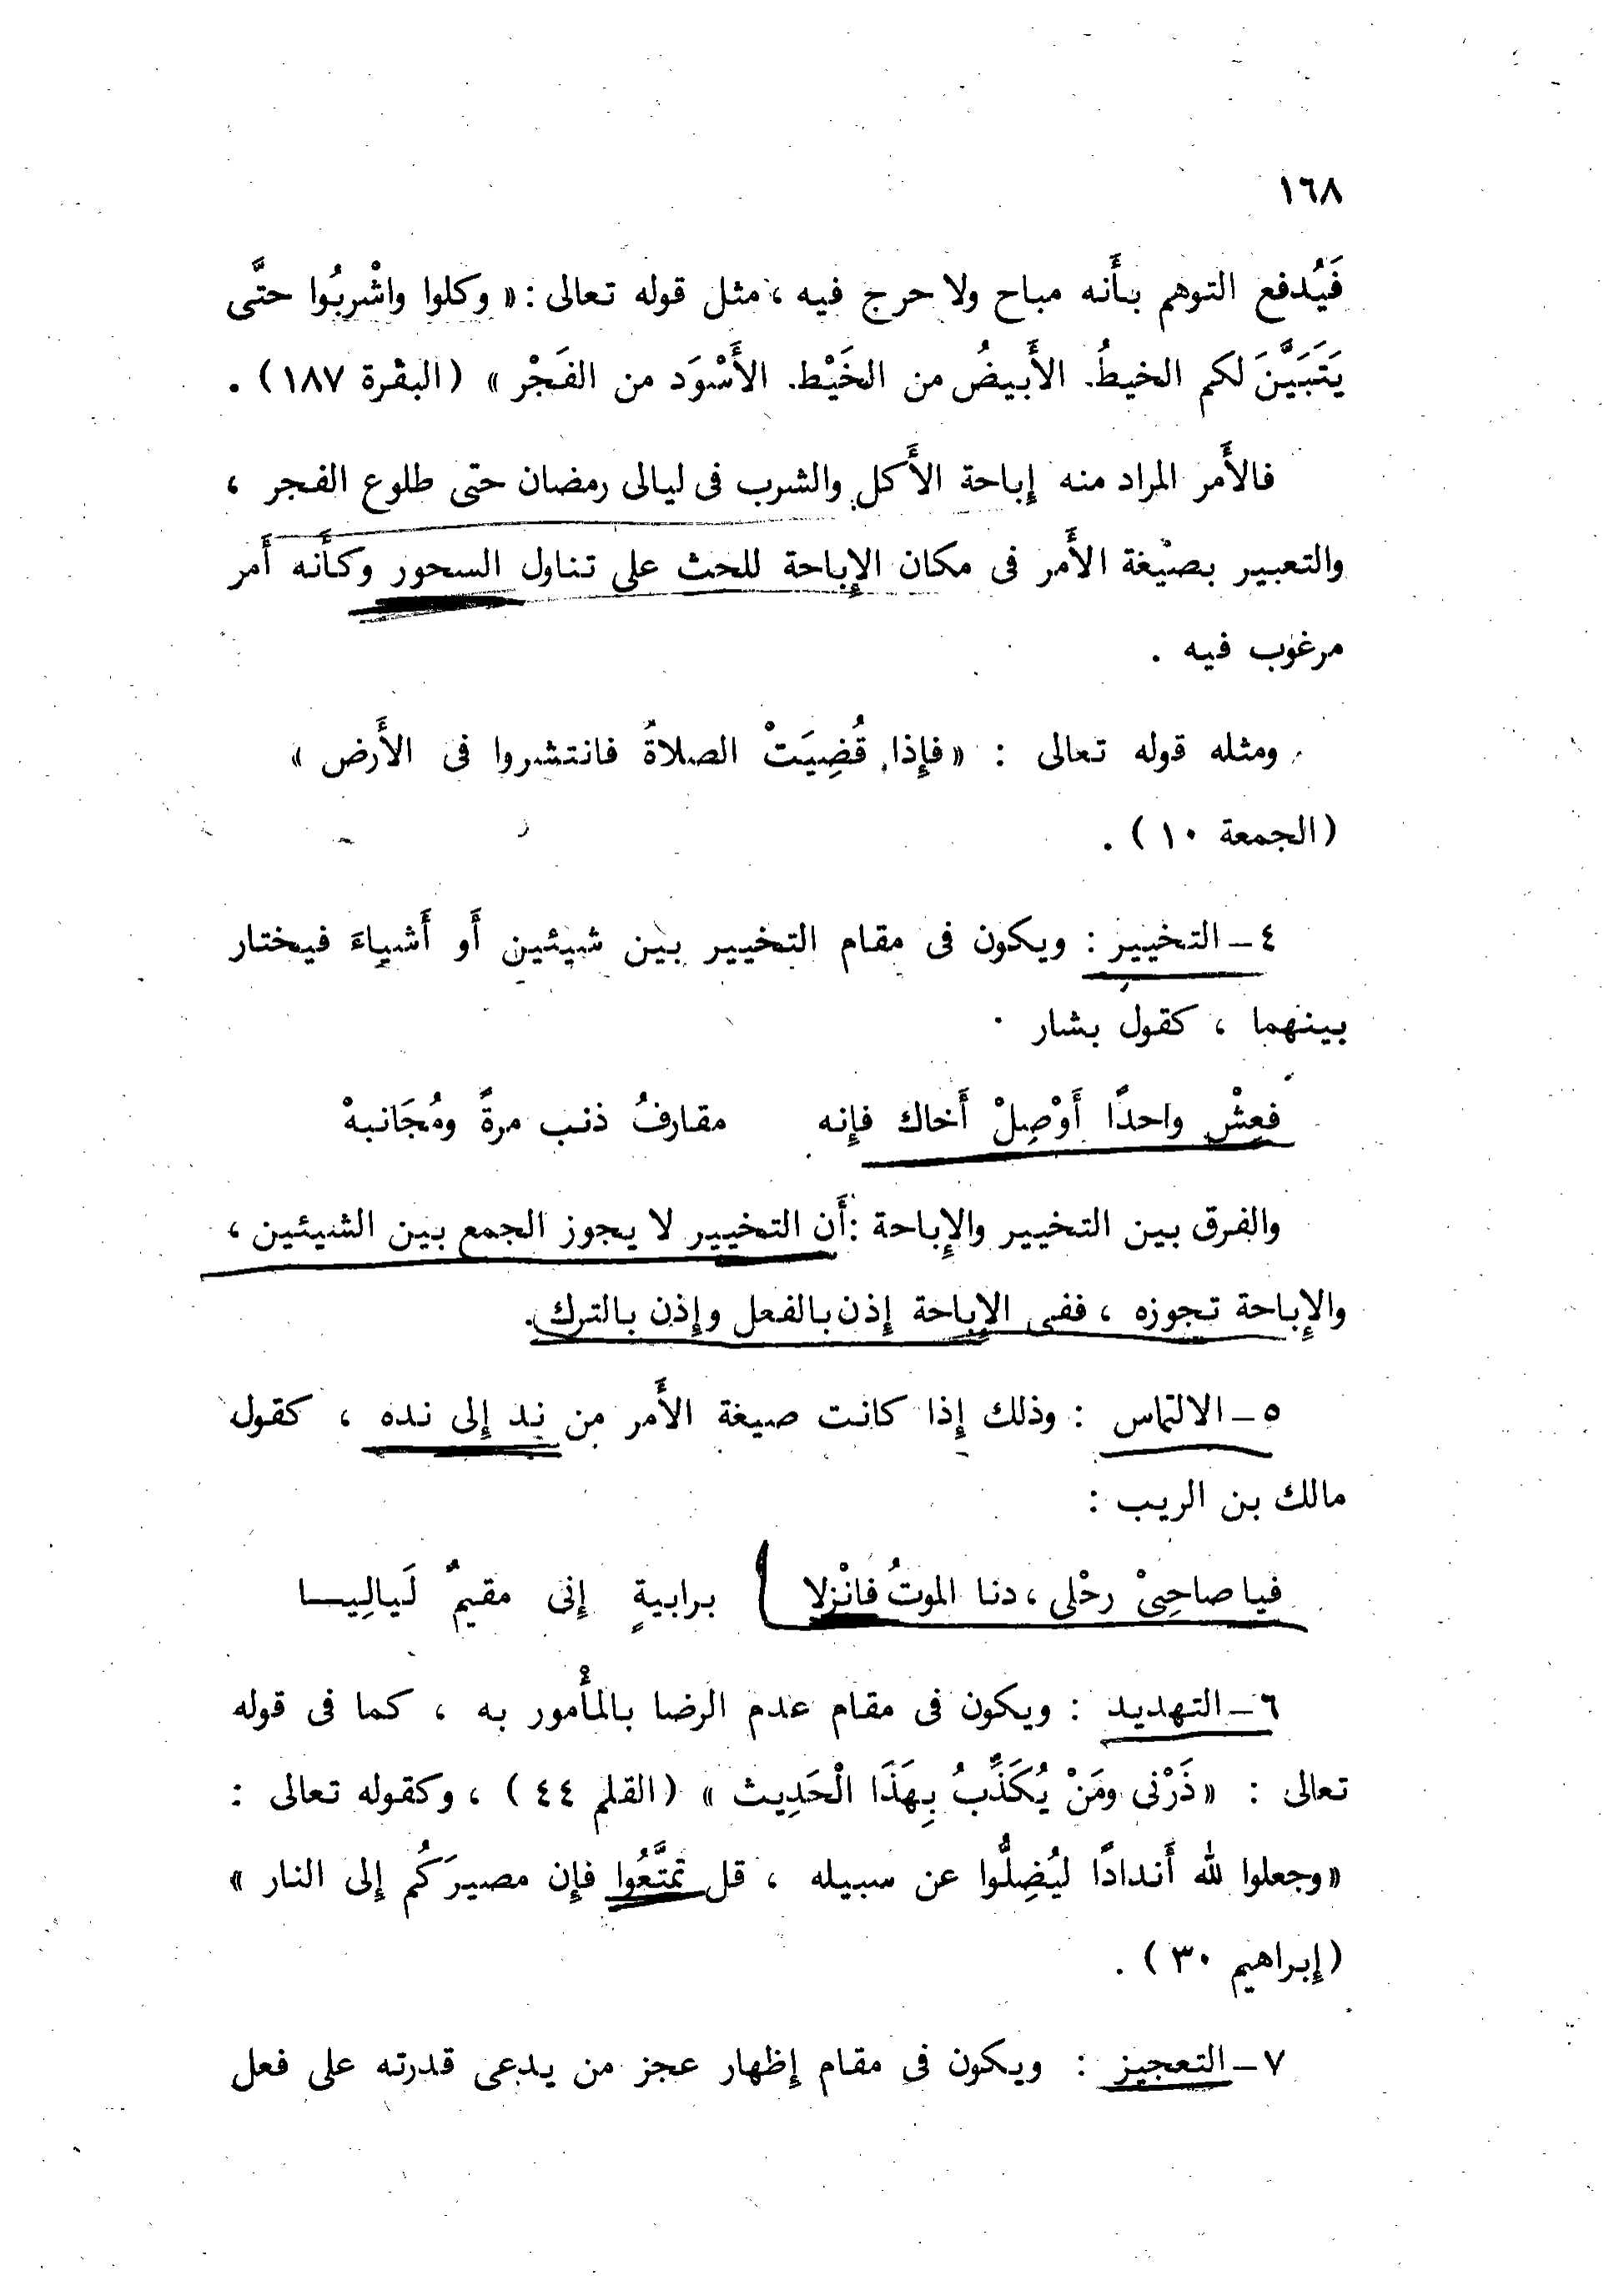 ١٦٨
فَيُدفع التوهم بأَنه مباح ولا حرج فيه ، مثل قوله تعالى : « وكلوا واشْربُوا حتَّى
يَتَبَيَّنَ لكم الخيطُ الأَبيضُ من الخَيْط الأَسْوَد من الفَجْر » (البقرة ١٨٧) .
فالأَمر المراد منه إِباحة الأَكل والشرب فى ليالى رمضان حتى طلوع الفجر ،
والتعبير بصيغة الأَمر فى مكان الإِباحة للحث على تناول السحور وكأَنه أَمر
مرغوب فيه .
ومثله قوله تعالى : « فإِذا قُضِيَتْ الصلاةُ فانتشروا فى الأَرض »
(الجمعة ١٠) .
٤ – التخيير : ويكون فى مقام التخيير بين شيئين أَو أَشياءَ فيختار
بينهما ، كقول بشار .
فعِشْ واحدًا أَوْصِلْ أَخاك فإِنه مقارفُ ذنب مرةً ومُجَانبهْ
والفرق بين التخيير والإِباحة : أَن التخيير لا يجوز الجمع بين الشيئين ،
والإِباحة تجوزه ، ففى الإِباحة إِذن بالفعل وإِذن بالترك .
٥ – الالتماس : وذلك إِذا كانت صيغة الأَمر من نِد إِلى نده ، كقول
مالك بن الريب :
فيا صاحِبىْ رحْلى ، دنا الموتُ فانْزلا برابيةٍ إِنى مقيمٌ لَيالِيـــا
٦ – التهديد : ويكون فى مقام عدم الرضا بالمأْمور به ، كما فى قوله
تعالى : « ذَرْنى ومَنْ يُكَذِّبُ بِهَذَا الْحَدِيث » (القلم ٤٤) ، وكقوله تعالى :
« وجعلوا لله أَندادًا ليُضِلُّوا عن سبيله ، قل تمتَّعُوا فإِن مصيرَكُم إِلى النار »
(إِبراهيم ٣٠) .
٧ – التعجيز : ويكون فى مقام إِظهار عجز من يدعى قدرته على فعل